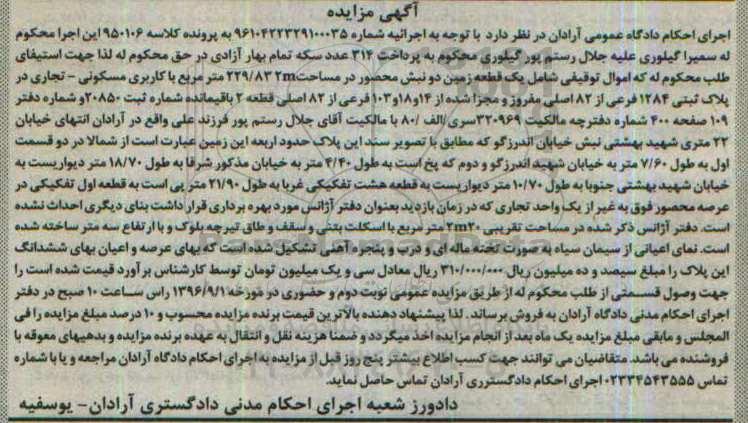 آگهی مزایده
اجرای احکام دادگاه عمومی آرادان در نظر دارد با توجه به اجرائیه شماره ۹۶۱۰۴۲۲۳۲۹۱۰۰۰۳۵ به پرونده کلاسه ۹۵۰۱۰۶ این اجرا محکوم
له سمیرا گیلوری علیه جلال رستم پور گیلوری محکوم به پرداخت ۳۱۴ عدد سکه تمام بهار آزادی در حق محکوم له لذا جهت استیفای
طلب محکوم له که اموال توقیفی شامل یک قطعه زمین دو نبش محصور در مساحت ۲۲۹/۸۳ ۲m متر مربع با کاربری مسکونی - تجاری در
پلاک ثبتی ۱۲۸۴ فرعی از ۸۲ اصلی مفروز و مجزا شده از ۱۴و۱۸و۱۰۳ فرعی از ۸۲ اصلی قطعه ۲ باقیمانده شماره ثبت ۲۰۸۵۰ و شماره دفتر
۱۰۹ صفحه ۴۰۰ شماره دفترچه مالکیت ۳۲۰۹۶۹سری/الف /۸۰ با مالکیت آقای جلال رستم پور فرزند علی واقع در آرادان انتهای خیابان
۲۲ متری شهید بهشتی نبش خیابان اندرزگو که مطابق با تصویر سند این پلاک حدود اربعه این زمین عبارت است از شمالا در دو قسمت
اول به طول ۷/۶۰ متر به خیابان شهید اندرزگو و دوم که پخ است به طول ۴/۴۰ متر به خیابان مذکور شرقا به طول ۱۸/۷۰ متر دیواریست به
خیابان شهید بهشتی جنوبا به طول ۱۰/۷۰ متر دیواریست به قطعه هشت تفکیکی غربا به طول ۲۱/۹۰ متر پی است به قطعه اول تفکیکی در
عرصه محصور فوق به غیر از یک واحد تجاری که در زمان بازدید بعنوان دفتر آژانس مورد بهره برداری قرار داشت بنای دیگری احداث نشده
است. دفتر آژانس ذکر شده در مساحت تقریبی ۲m۲۰ متر مربع با اسکلت بتنی و سقف و طاق تیرچه بلوک و با ارتفاع سه متر ساخته شده
است. نمای اعیانی از سیمان سیاه به صورت تخته ماله ای و درب و پنجره آهنی تشکیل شده است که بهای عرصه و اعیان بهای ششدانگ
این پلاک را مبلغ سیصد و ده میلیون ریال ۳۱۰/۰۰۰/۰۰۰ ریال معادل سی و یک میلیون تومان توسط کارشناس برآورد قیمت شده است را
جهت وصول قسمتی از طلب محکوم له از طریق مزایده عمومی نوبت دوم و حضوری در مورخه ۱۳۹۶/۹/۱ راس ساعت ۱۰ صبح در دفتر
اجرای احکام مدنی دادگاه آرادان به فروش برساند. لذا پیشنهاد دهنده بالاترین قیمت برنده مزایده محسوب و ۱۰ درصد مبلغ مزایده را فی
المجلس و مابقی مبلغ مزایده یک ماه بعد از انجام مزایده اخذ میگردد و ضمنا هزینه نقل و انتقال به عهده برنده مزایده و بدهیهای معوقه با
فروشنده می باشد. متقاضیان می توانند جهت کسب اطلاع بیشتر پنج روز قبل از مزایده به اجرای احکام دادگاه آرادان مراجعه و یا با شماره
تماس ۰۲۳۳۴۵۴۳۵۵۵ اجرای احکام دادگستری آرادان تماس حاصل نماید.
دادورز شعبه اجرای احکام مدنی دادگستری آرادان- یوسفیه